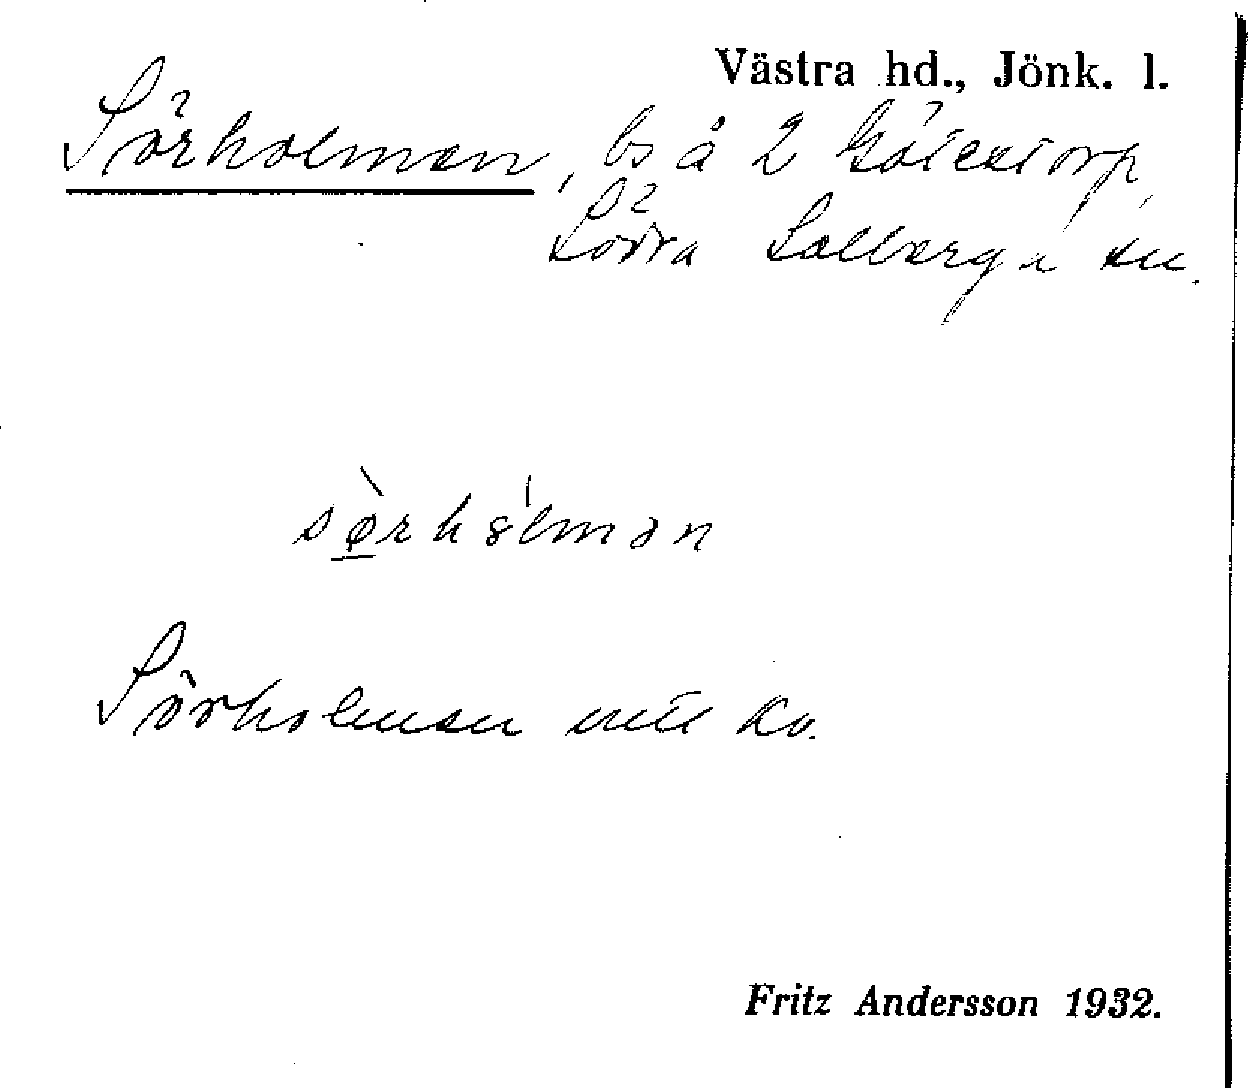 Västra hd., Jönk. l.
Sörholmen, bs å 2 Götestorp,
Södra Solberga sn.
sø̀rhålmən
Sörholmen mtl kv.
Fritz Andersson 1932.